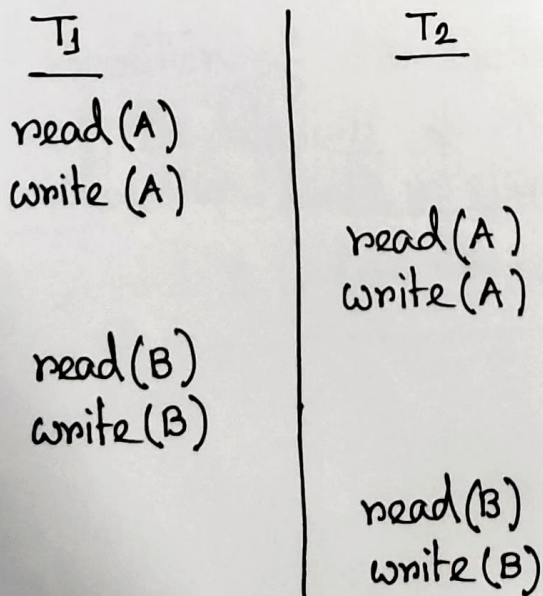 T1
read(A)
write(A)
read(B)
write(B)
T2
read(A)
write(A)
read(B)
write(B)